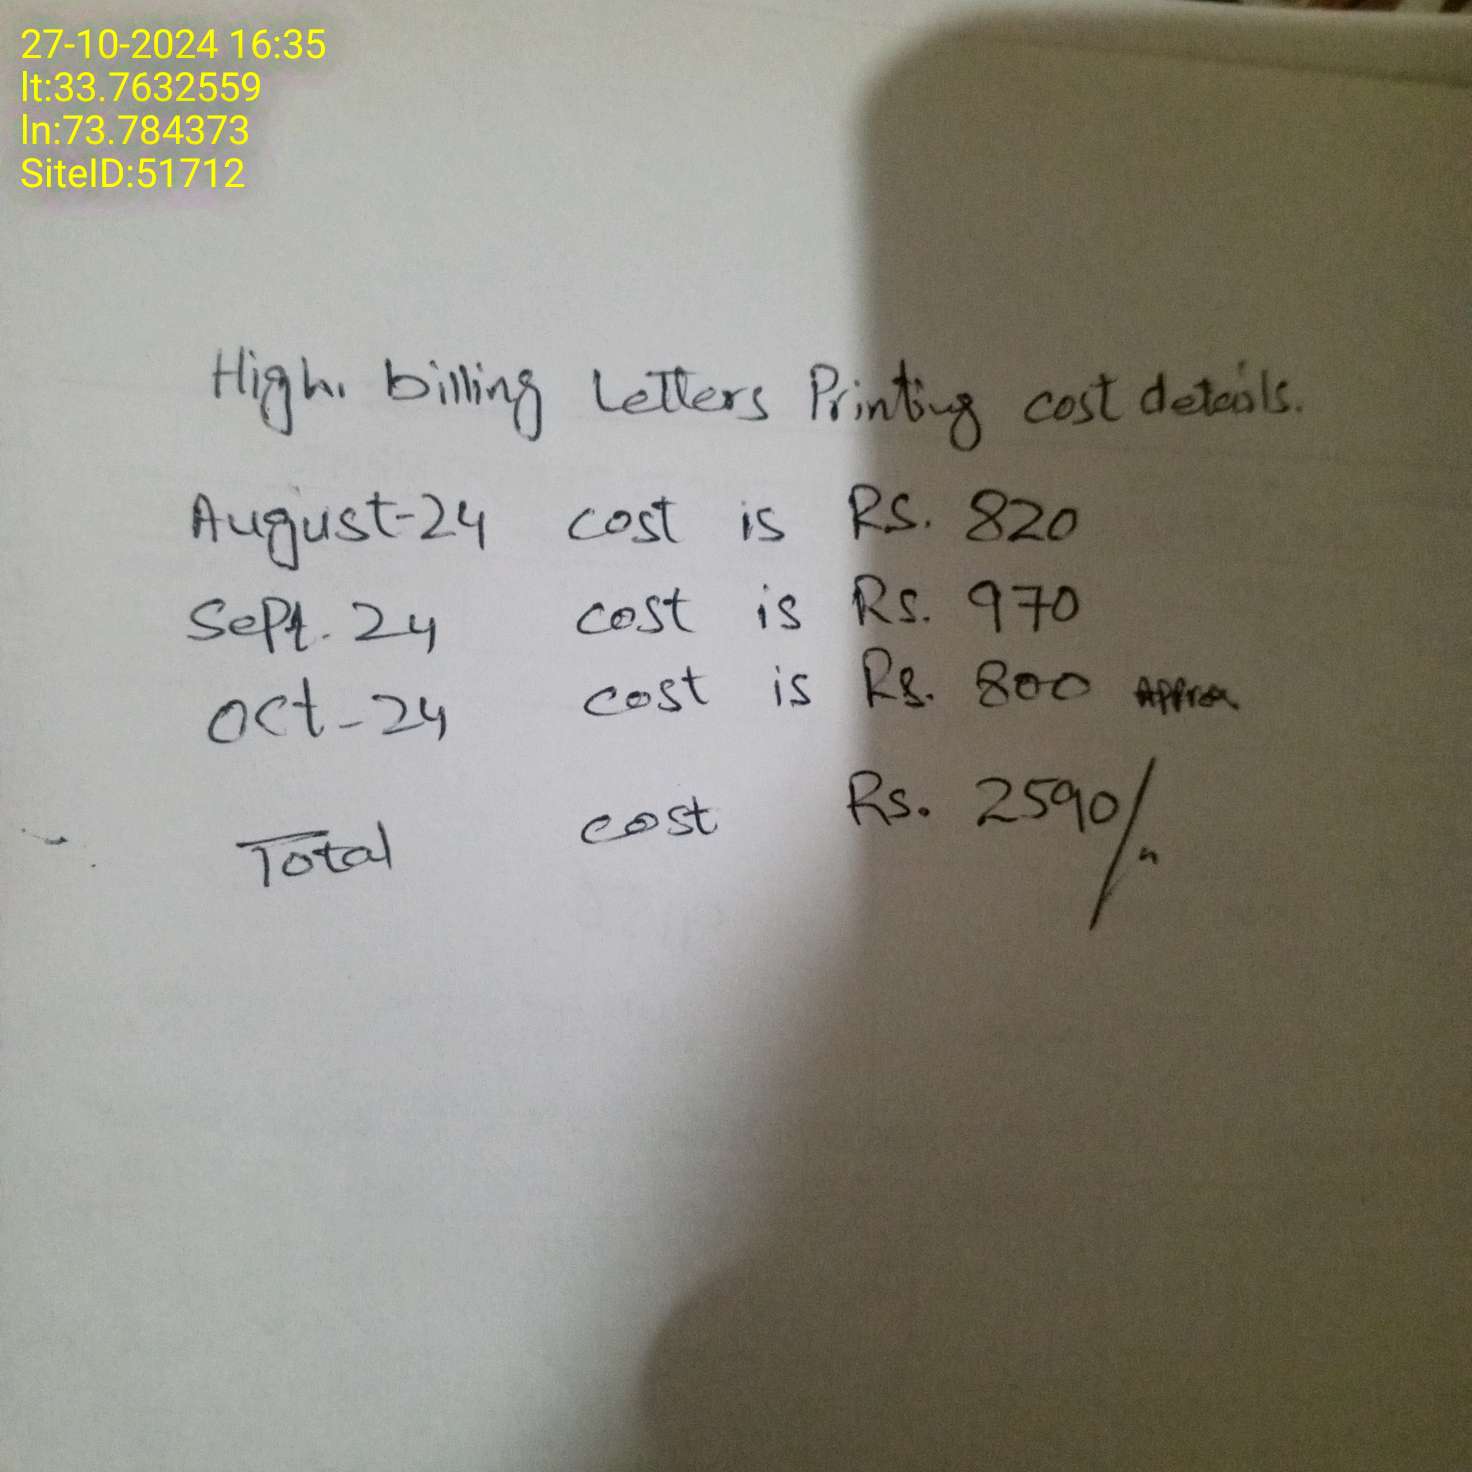 27-10-2024 16:35
lt:33.7632559
ln:73.784373
SiteID:51712
High. billing Letters Printing cost details.
August-24 cost is Rs. 820
Sept. 24 cost is Rs. 970
Oct-24 cost is Rs. 800 Approx
Total cost Rs. 2590/=